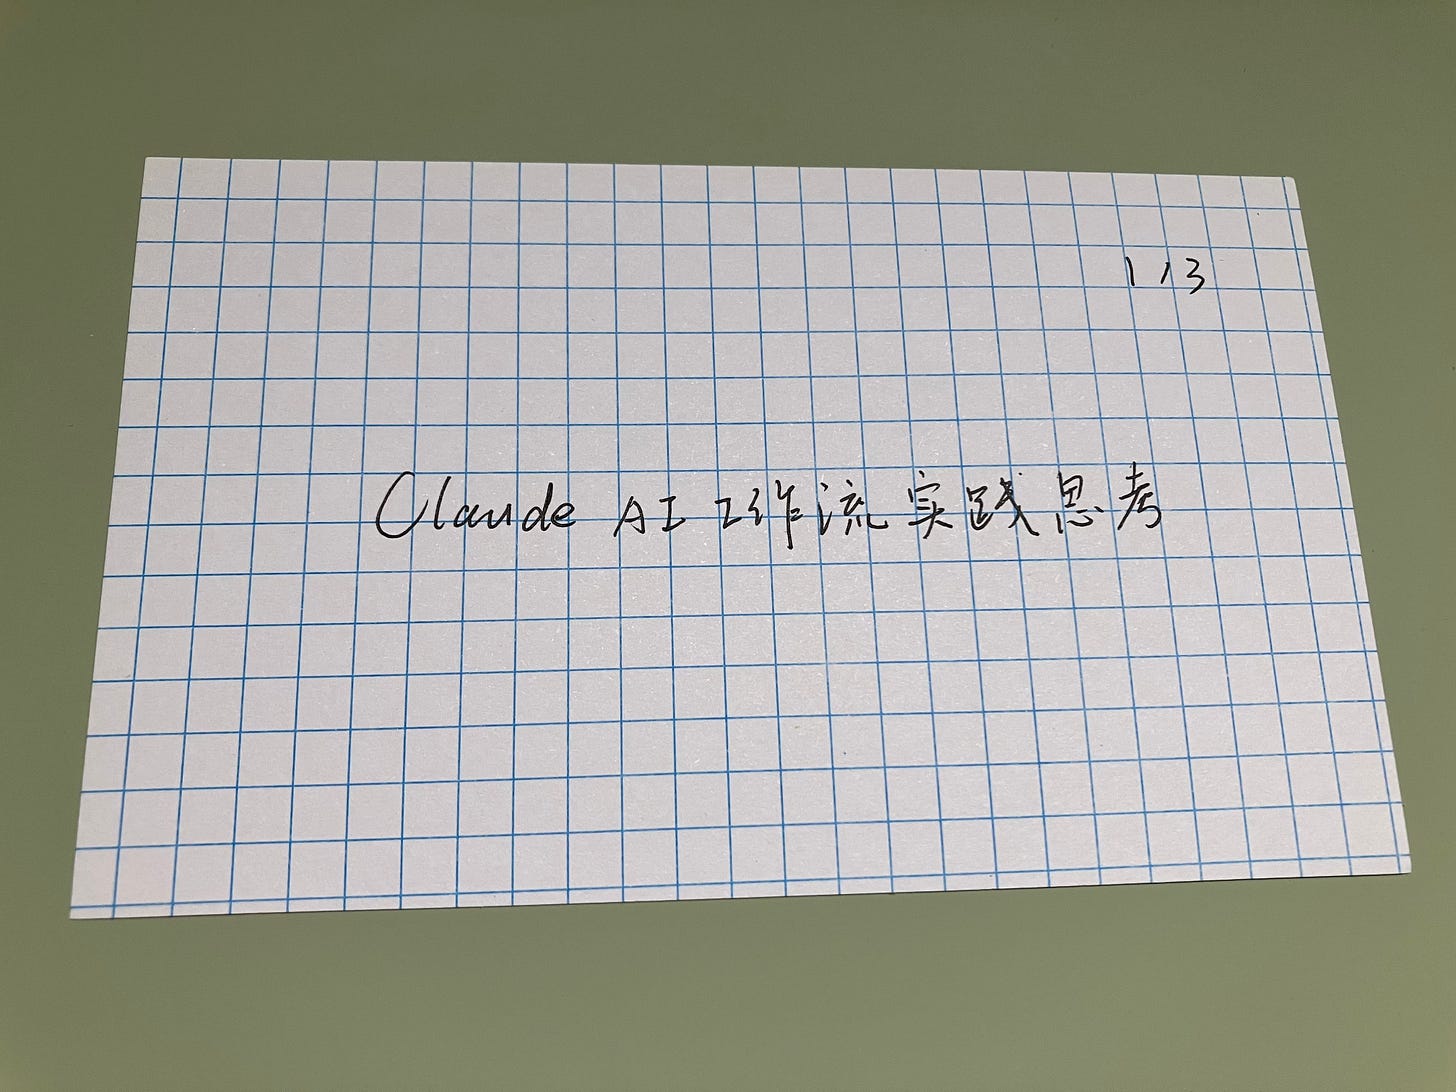 1/3
Claude AI 工作流实践思考